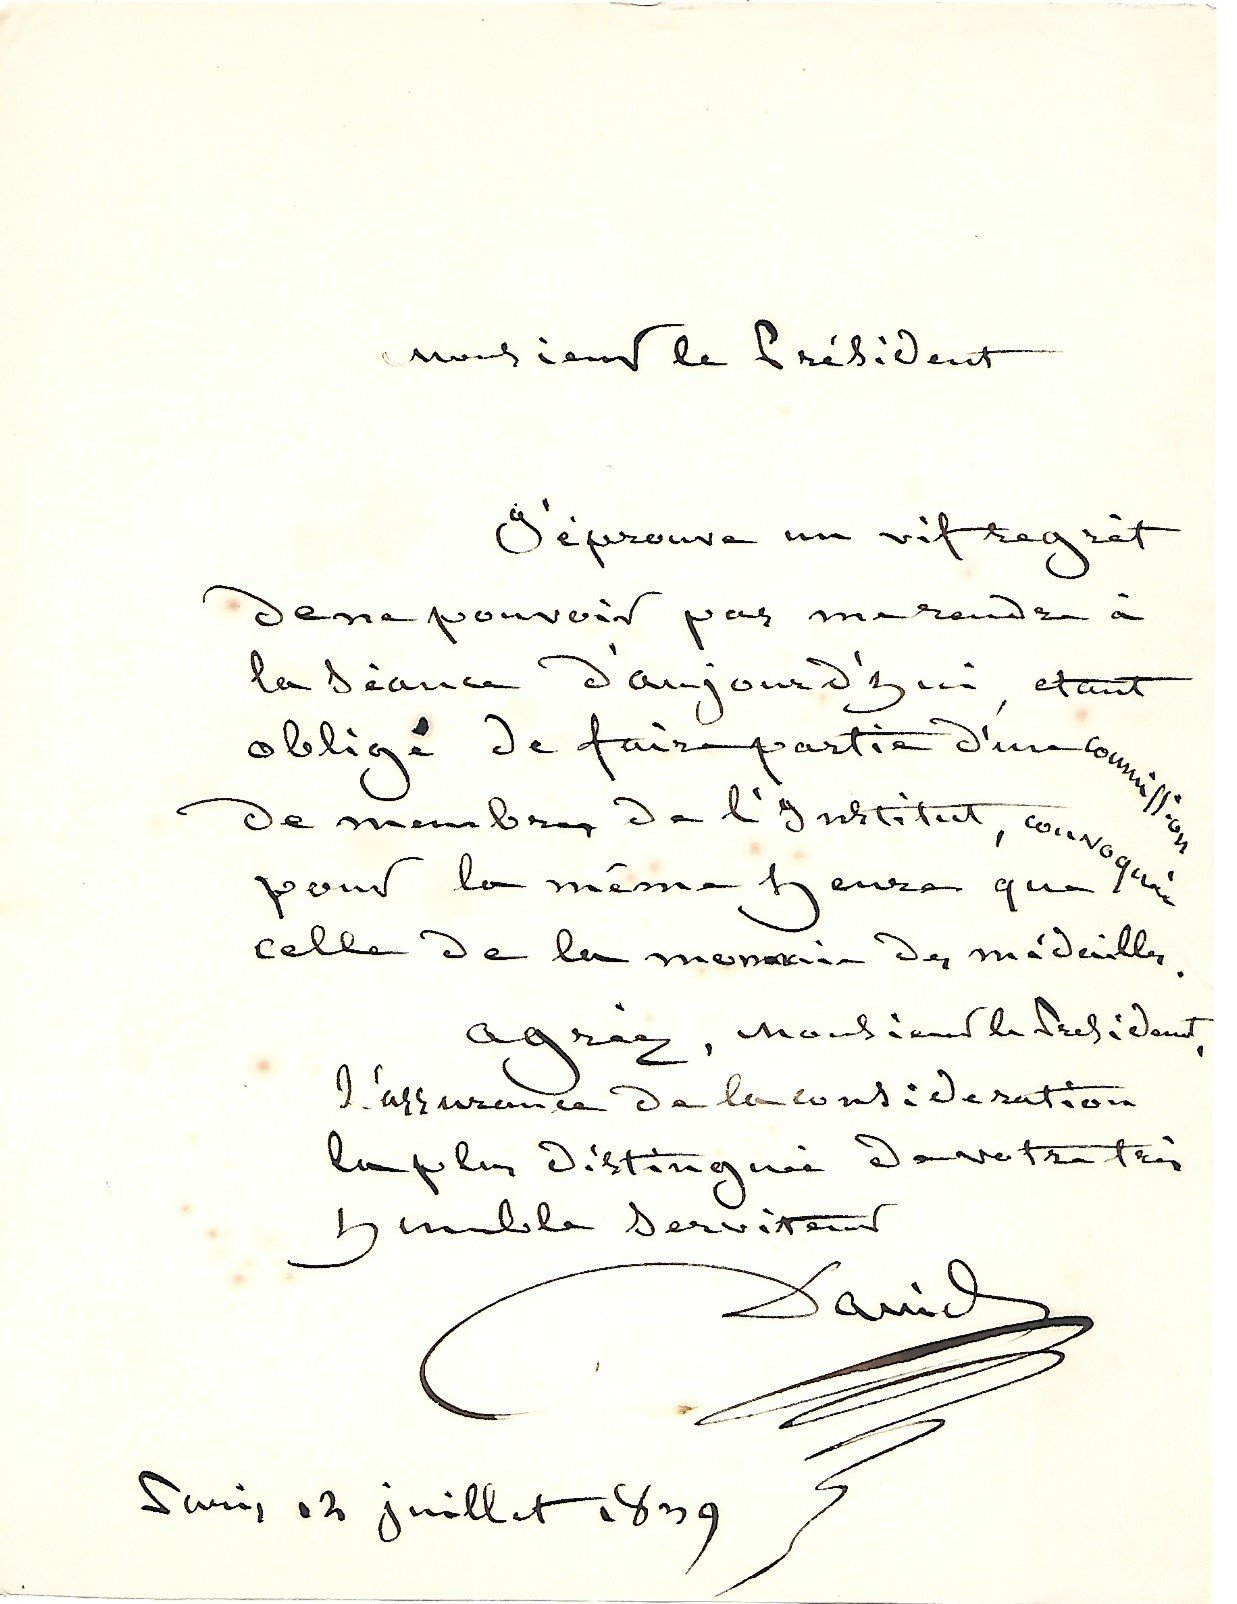 Monsieur le Président
J'éprouve un vif regrèt
de ne pouvoir pas me rendre à
la séance d'aujourd'hui, etant
obligé de faire partie d'une commission
de membres de l'Institut, convoquée
pour la même heure que
celle de la monnaie des médailles.
agréez, Monsieur le President,
l'assurance de la consideration
la plus distinguée de votre très
humble serviteur
David
Paris 12 juillet 1839